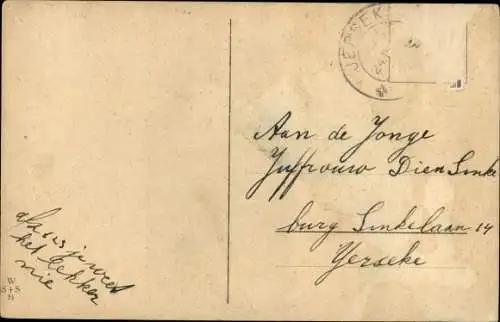 JERSEKE
24
Aan de Jonge
Juffrouw Dien Sinke
burg Sinkelaan 14
Yerseke
je weet
het lekker
nie
W
S+S
B